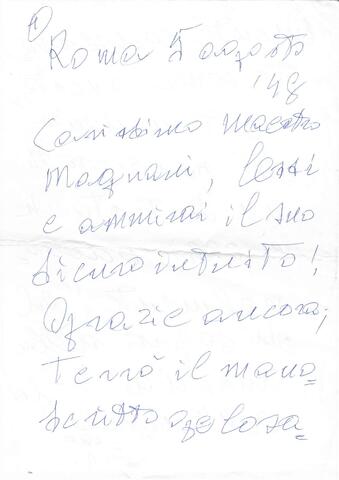 1)
Roma 5 agosto
'48
Carissimo Maestro
Magnani, lessi
e ammirai il suo
sicuro intuito!
Grazie ancora;
Terrò il mano=
scritto gelosa=